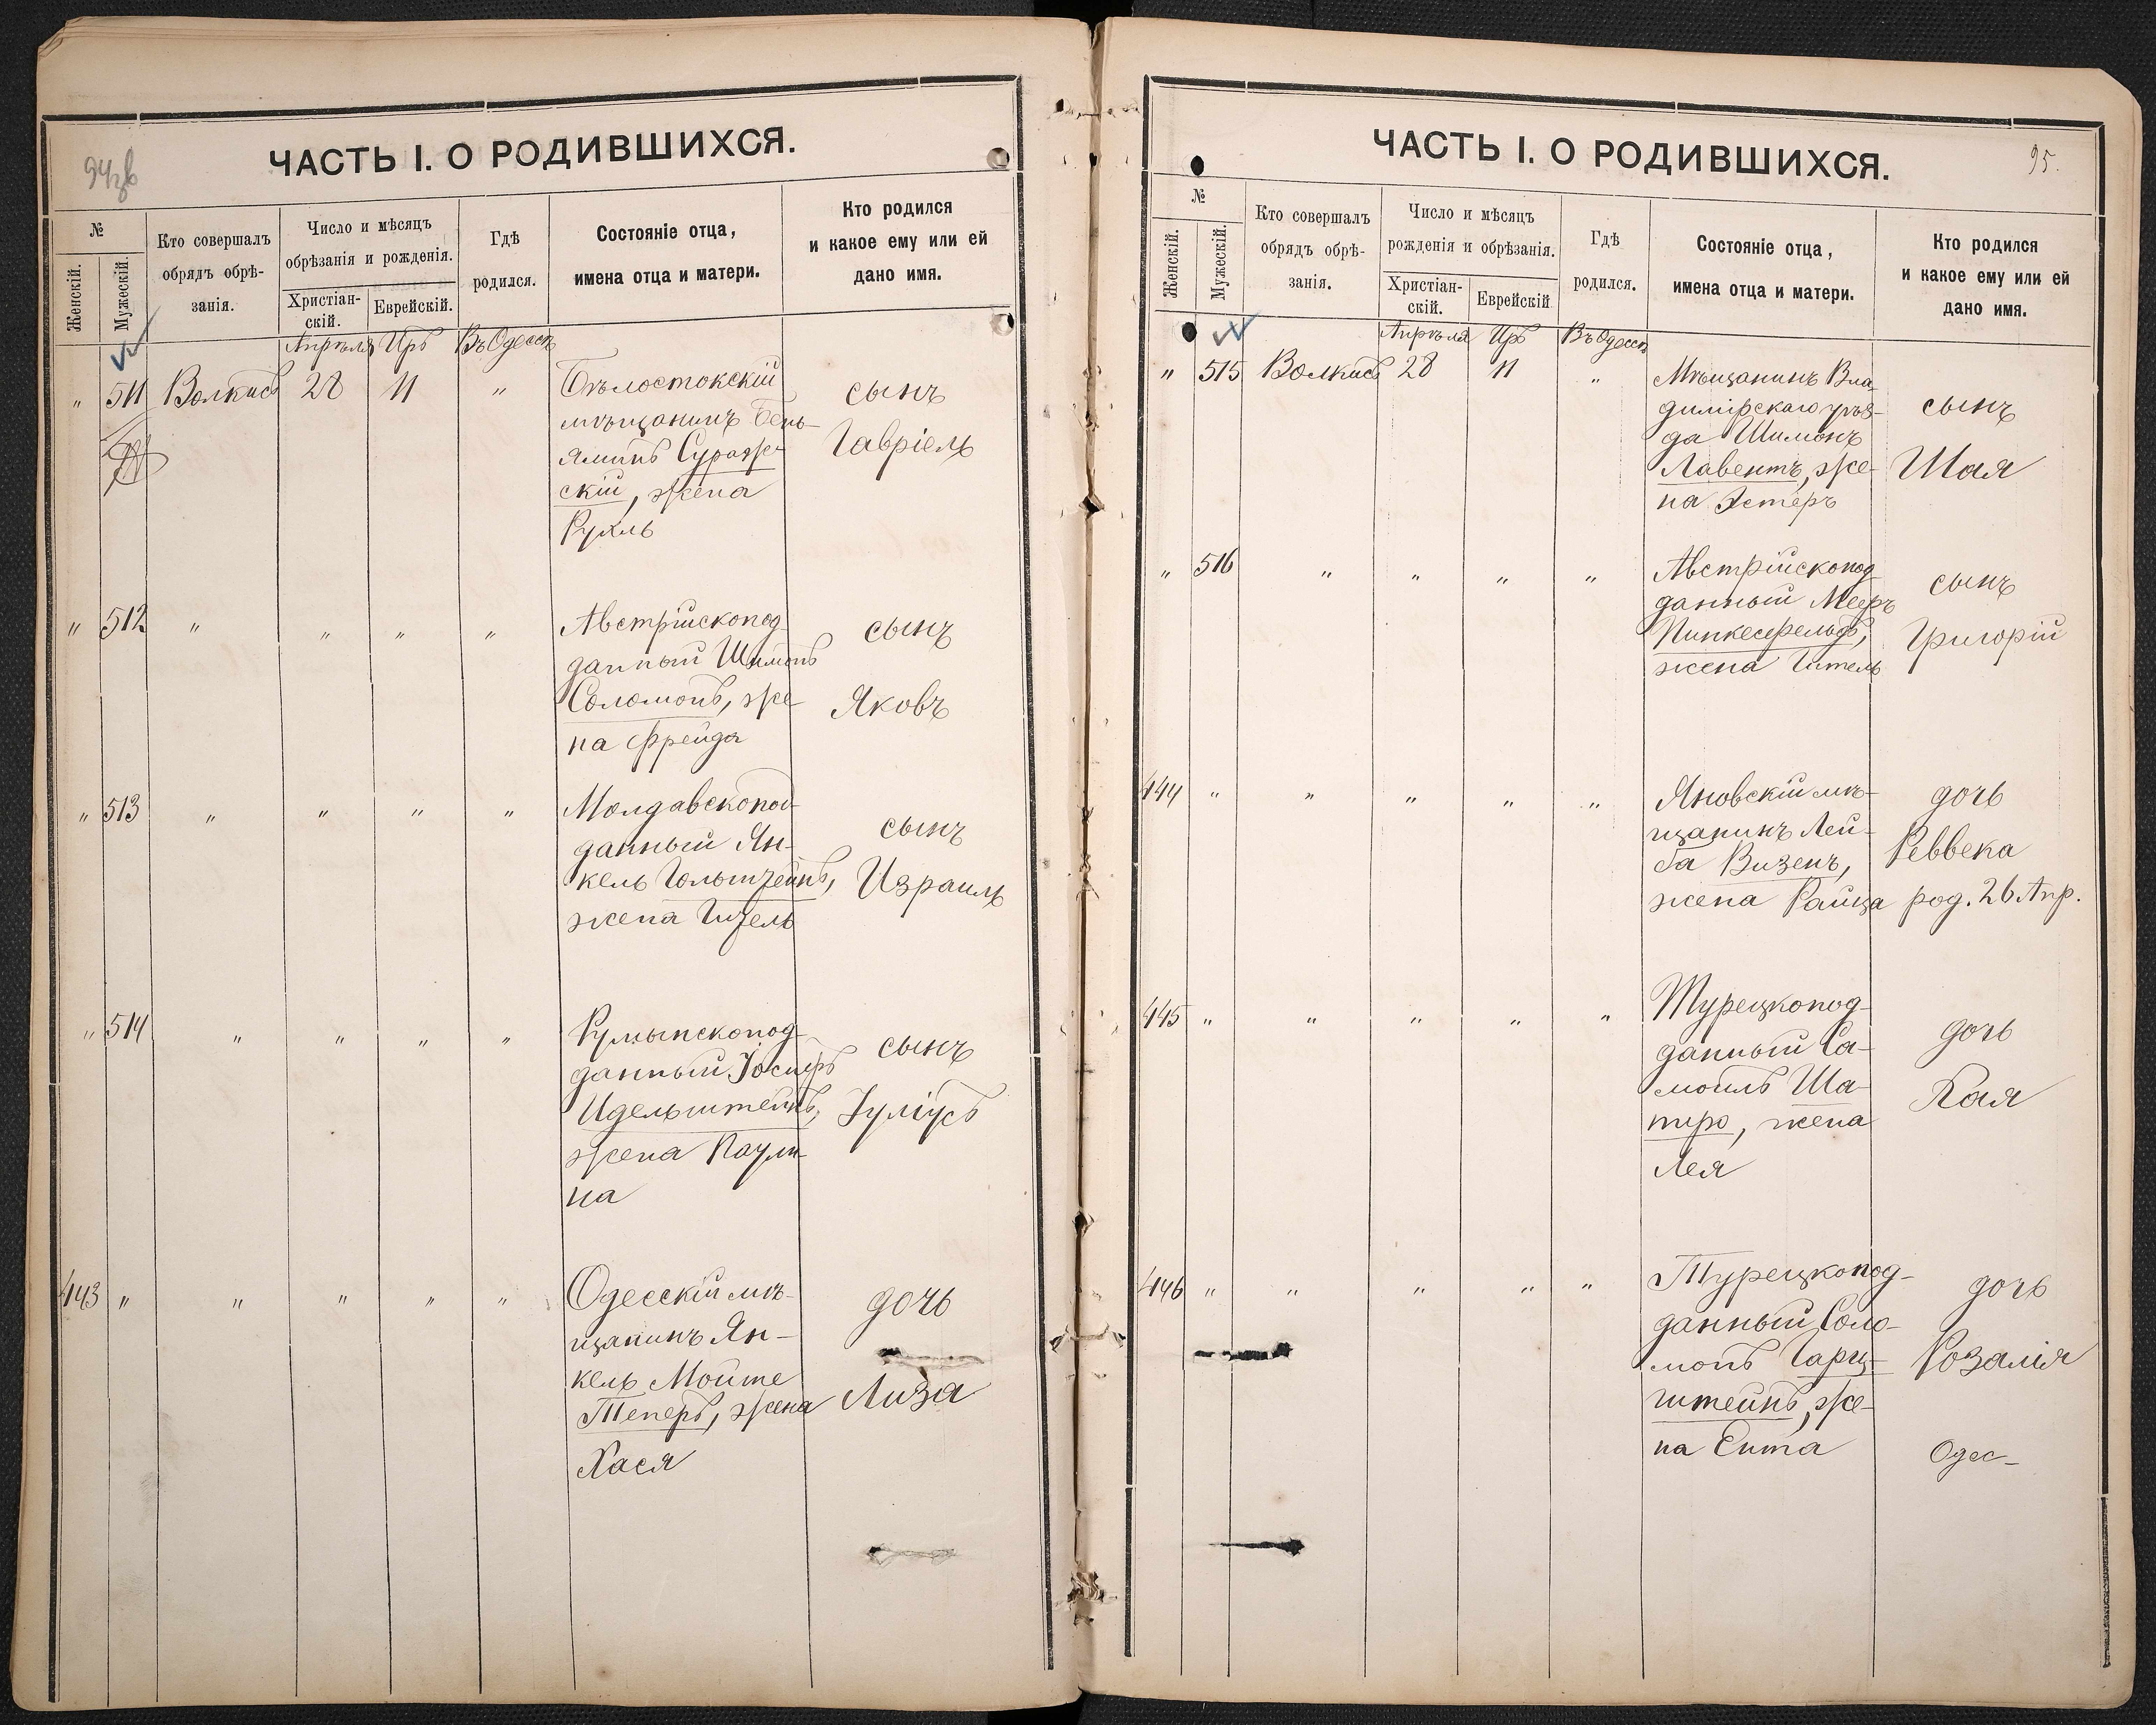 ЧАСТЬ I. О РОДИВШИХСЯ.
№
Женскій.
Мужескій.
Кто совершалъ
обрядъ обрѣ-
занія.
Число и мѣсяцъ
обрѣзанія и рожденія.
Христіан-
скій.
Еврейскій.
Гдѣ
родился.
Состояніе отца,
имена отца и матери.
Кто родился
и какое ему или ей
дано имя.
Апрѣля Иръ Въ Одессѣ
" 511 Волкисъ 28 11 "
Бѣлостокскій
мѣщанинъ Бень-
яминъ Сураж-
скій, жена
Рухль
сынъ
Гавріель
" 512 " " " "
Австрійскопод
данный Шимонъ
Соломонъ, же-
на Фрейда
сынъ
Яковъ
" 513 " " " "
Молдавскопод-
данный Ян-
кель Гольдштейнъ,
жена Гизель
сынъ
Израиль
" 514 " " " "
Румынскопод-
данный Іосифъ
Идельштейнъ,
жена Паули-
на
сынъ
Іуліусъ
443 " " " " "
Одесскій мѣ-
щанинъ Ян-
кель Мойше
Теперъ, жена
Хася
дочь
Лиза
ЧАСТЬ I. О РОДИВШИХСЯ.
95.
№
Женскій.
Мужескій.
Кто совершалъ
обрядъ обрѣ-
занія.
Число и мѣсяцъ
рожденія и обрѣзанія.
Христіан-
скій.
Еврейскій
Гдѣ
родился.
Состояніе отца,
имена отца и матери.
Кто родился
и какое ему или ей
дано имя.
Апрѣля Иръ Въ Одессѣ
" 515 Волкисъ 28 11 "
Мѣщанинъ Вла-
димірскаго уѣз-
да Шимонъ
Лавентъ, же-
на Эстеръ
сынъ
Шая
" 516 " " " "
Австрійскопод
данный Мееръ
Пинкесфельдъ,
жена Гитель
сынъ
Григорій
444 " " " " "
Яновскій мѣ-
щанинъ Лей-
ба Визенъ,
жена Райца
дочь
Реввека
род. 26 Апр.
445 " " " " "
Турецкопод-
данный Са-
моилъ Ша-
пиро, жена
Лея
дочь
Хая
446 " " " " "
Турецкопод-
данный Соло-
монъ Гарц-
штейнъ, же-
на Ента
дочь
Розалія
Одес-